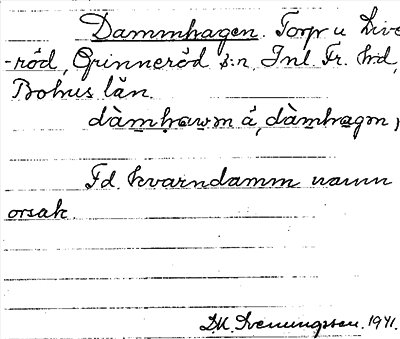 Dammhagen. Torp u. Live
-röd, Grinneröd s:n, Inl. Fr. hd,
Bohus län.
dàmhawm å, dàmhagm,
Fd. kvarndamm namn
orsak.
D.K. Svenungsson. 1941.